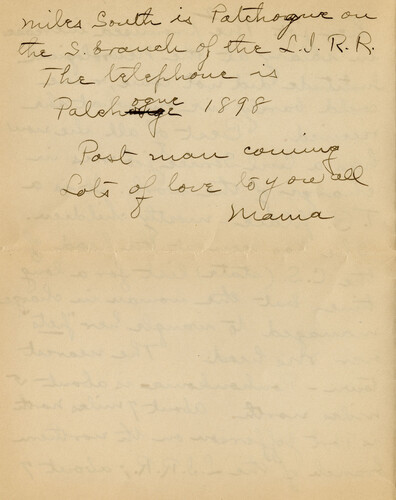 miles South is Patchogue on
the S. branch of the L.I. R.R.
The telephone is
Patchogue 1898
Post man coming
Lots of love to you all
Mama